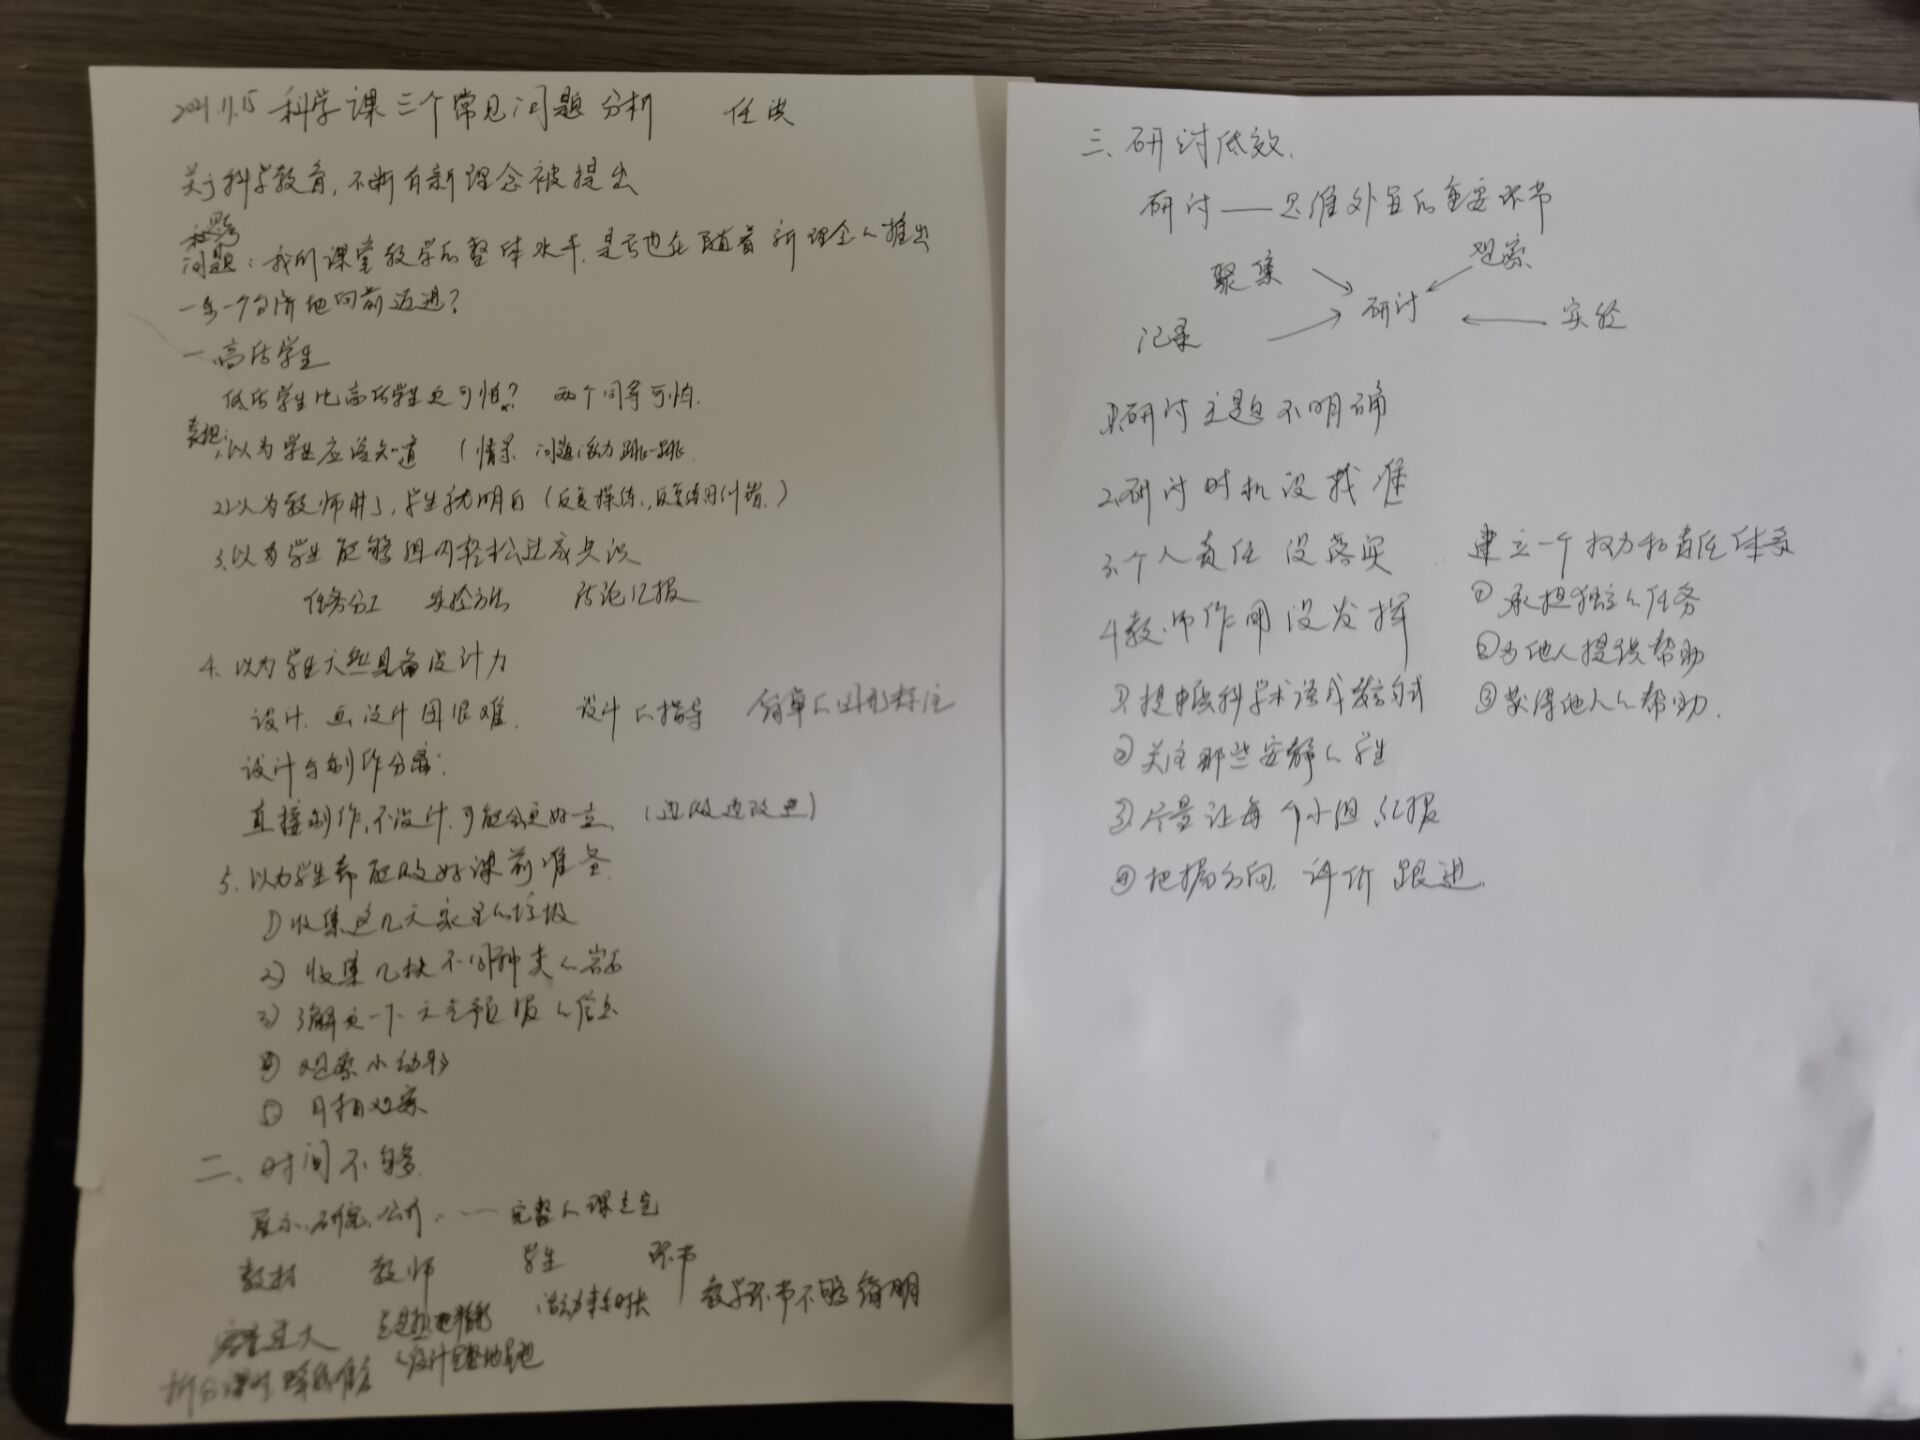 2021.11.15 科学课三个常见问题分析 任
关于科学教育，不断有新理念被提出
思考
问题：我们课堂教学的整体水平，是否也在随着新理念的推出
一步一个台阶地向前迈进？
一、高估学生
低估学生比高估学生更可怕？ 两个同等可怕.
表现：1.以为学生应该知道 （情景 问题 活动 跳一跳
2.以为教师讲了，学生就明白（反复操练，反复练习纠错.）
3.以为学生能够组内轻松达成共识
任务分工 实验方法 结论汇报
4. 以为学生天然具备设计力
设计. 画设计图很难. 设计的指导 简单的图形标注
设计与制作分离：
直接制作，不设计. 可能会更好一点 （边做边改进）
5. 以为学生都能做好课前准备
①收集这几天家里的垃圾
② 收集几块不同种类的岩石
③ 了解一下天气预报的信息
④ 观察小动物
⑤ 月相观察
二、时间不够.
展示、研究、公开. ······ 完整的课
教材 教师 学生 环节
容量过大 活动耗时长 教学环节不够简明
拆分课时
三、研讨低效.
研讨——思维外显的重要环节
聚焦 观察
研讨
记录 实验
1.研讨主题不明确
2.研讨时机没找准
3.个人责任没落实 建立一个权力和责任体系
① 承担独立的任务
4.教师作用没发挥
②为他人提供帮助
①提供科学术语或发言句式 ③获得他人的帮助.
②关注那些安静的学生
③尽量让每个小组汇报
④把握方向 评价跟进.